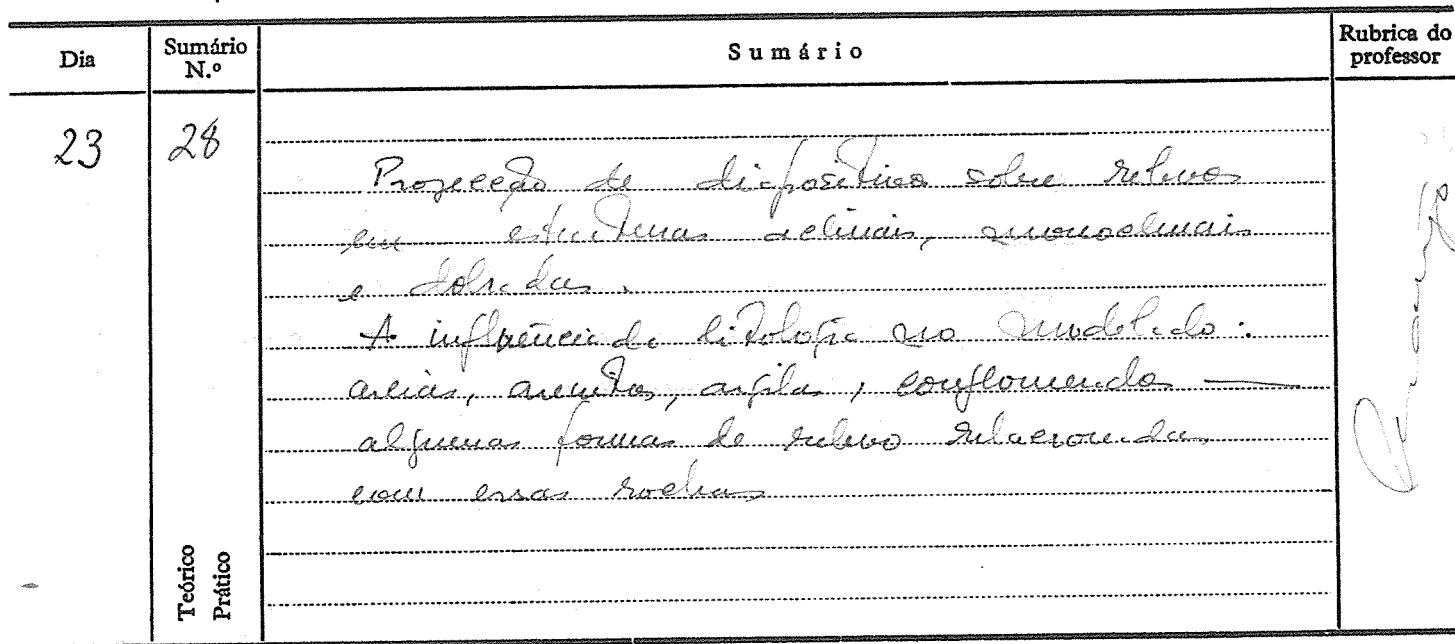 Dia
Sumário N.º
Sumário
Rubrica do professor
23
28
Projecção de diapositivos sobre relevos
em estruturas aclinais, monoclinais
e dobradas.
A influência da litologia no modelado:
areias, arenitos, argilas, conglomerados —
algumas formas de relevo relacionadas
com essas rochas
Teórico
Prático